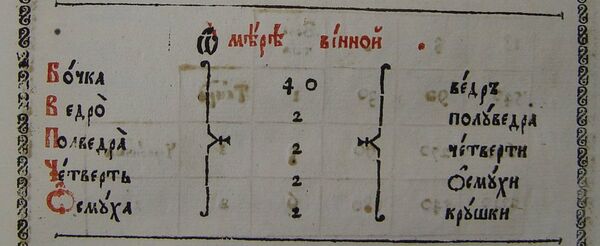 Ѡ мѣ́рѣ ві́нной.
Бо́чка 40 ве́дръ
Ведро̀ 2 полꙋведра̀
Полведра̀ 2 че́тверти
Че́тверть 2 Ѻсмꙋ́хи
Ѻсмꙋ́ха 2 крꙋ́шки